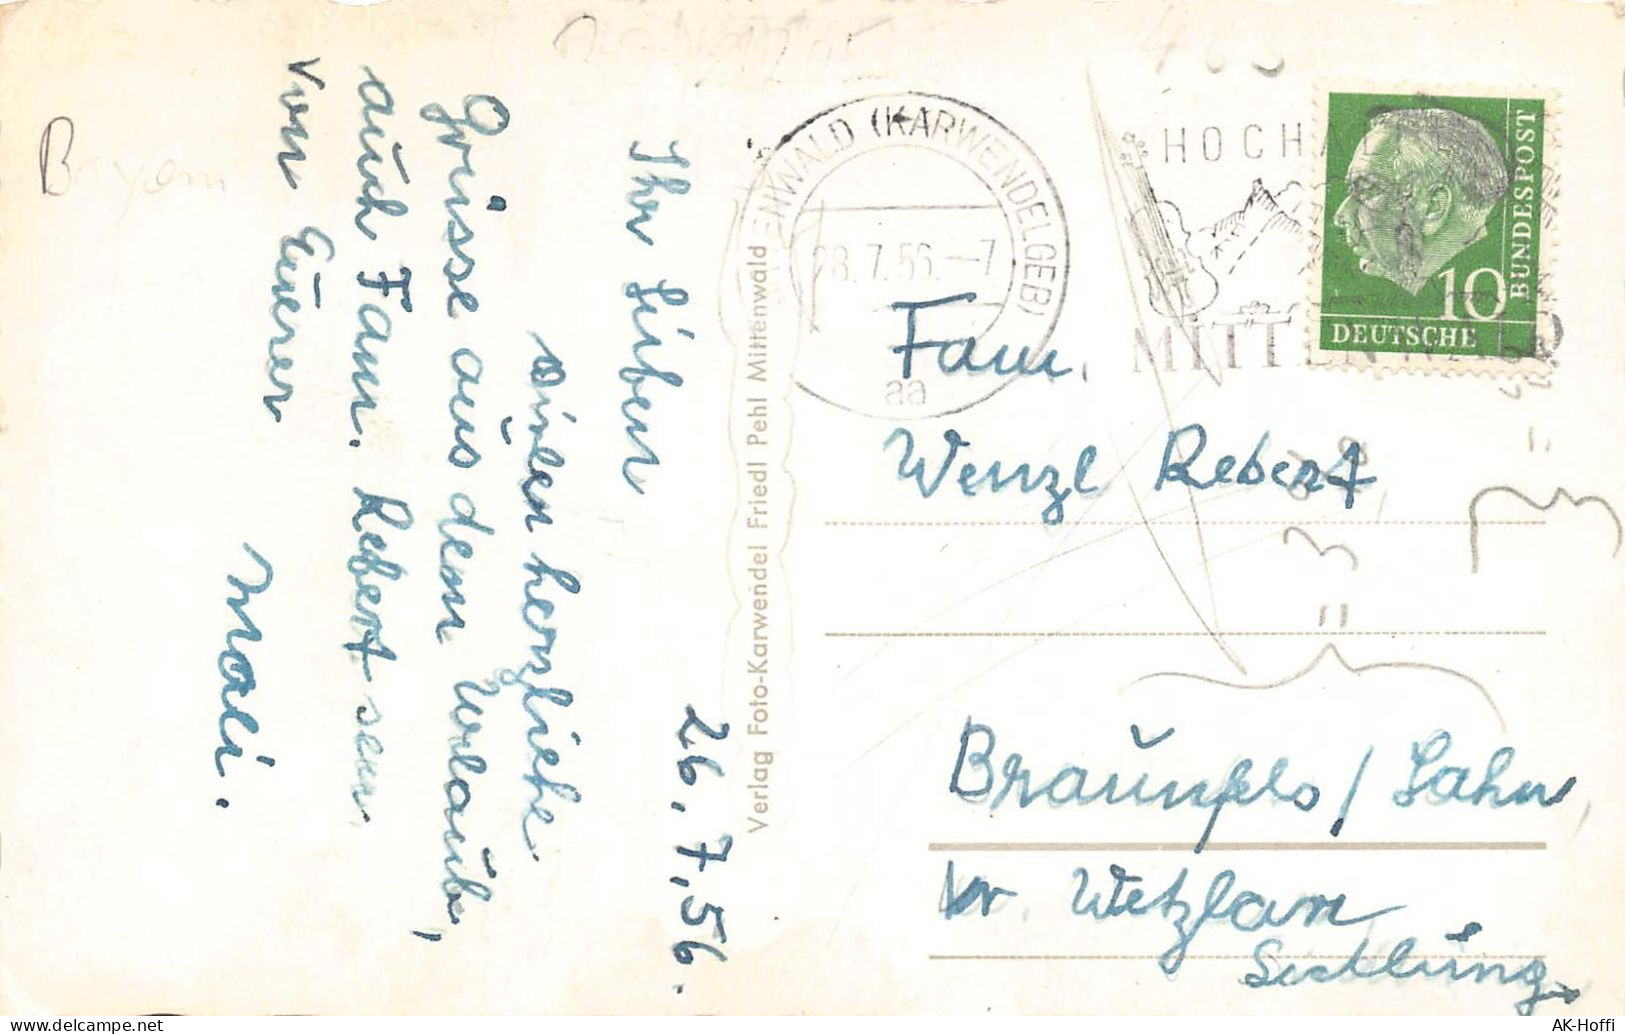 26.7.56.
Ihr Lieben
vielen herzliche
Grüsse aus dem Urlaub,
auch Fam. Rebert sen
von Eurer
Mali.
Bayern
Verlag Foto-Karwendel Friedl Pehl Mittenwald
MITTENWALD (KARWENDELGEB)
28.7.56.-7
aa
HOCHA
MITTENWALD
10
DEUTSCHE
BUNDESPOST
Fam.
Wenzl Rebert
Braunfels / Lahn
Kr. Wetzlar
Siedlung
AK-Hoffi